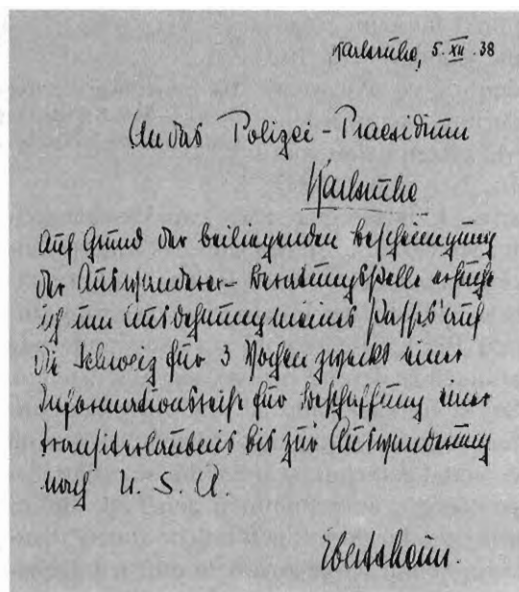 Karlsruhe, 5. XII. 38
An das Polizei-Praesidium
Karlsruhe
Auf Grund der beiliegenden Bescheinigung
der Auswanderer-Beratungsstelle ersuche
ich um Ausdehnung meines Passes auf
die Schweiz für 3 Wochen zwecks einer
Informationsreise für Beschaffung einer
Transiterlaubnis bis zur Auswanderung
nach U. S. A.